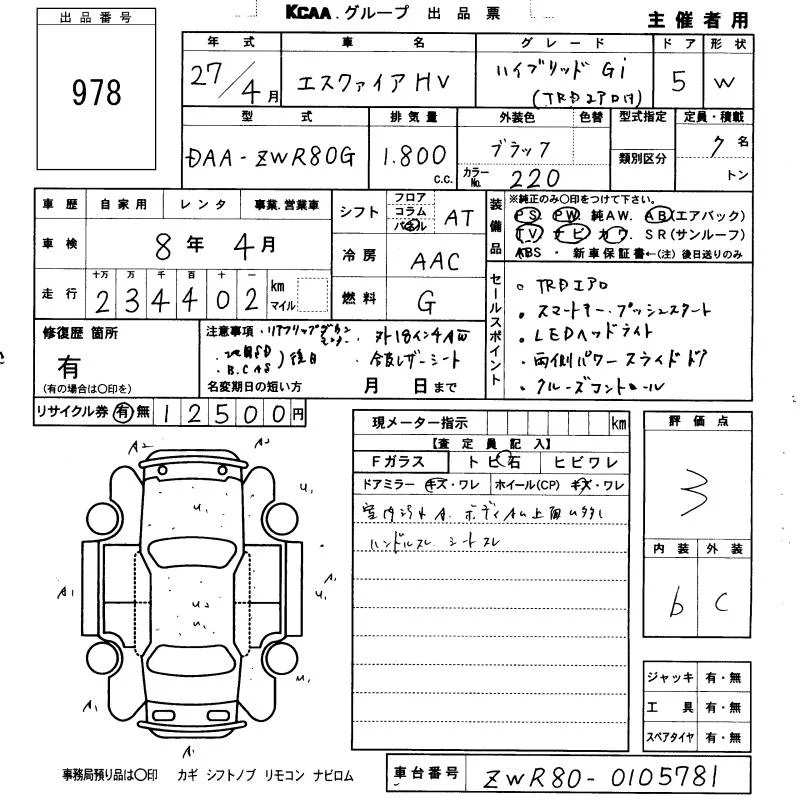 KCAA.グループ 出品票
主催者用
出品番号
978
年式 車名 グレード ドア 形状
27/4月 エスクァイアHV ハイブリッド Gi (TRDエアロ付) 5 W
型式 排気量 外装色 色替 型式指定 定員・積載
DAA-ZWR80G 1.800 c.c. ブラック 7名
カラーNo. 220 類別区分 トン
車歴 自家用 レンタ 事業.営業車
車検 8年4月
走行 十万 万 千 百 十 一 km マイル
234402
シフト フロア コラム パネル AT
冷房 AAC
燃料 G
装備品
※純正のみ○印をつけて下さい。
PS PW 純AW. AB(エアバック)
TV ナビ カワ. SR(サンルーフ)
ABS ・ 新車保証書←(注) 後日送りのみ
セールスポイント
。TRDエアロ
。スマートキー.プッシュスタート
。LEDヘッドライト
。両側パワースライドドア
。クルーズコントロール
修復歴 箇所
有
(有の場合は○印を)
注意事項・リアフリップダウンモニター 外18インチAW
・地図SD ・B.CAS)後日 合皮レザーシート
名変期日の短い方 月 日まで
リサイクル券 有 無 12500円
現メーター指示 km
【査定員記入】
Fガラス トビ石 ヒビワレ
ドアミラー キズ・ワレ ホイール(CP) キズ・ワレ
室内汚れA.ボディAU上面U多し
ハンドルスレ シートスレ
評価点
3
内装 外装
b C
A2 A2
U1 U1
A1 U2 U1 A1 U1
A1 A1
A1
ジャッキ 有・無
工具 有・無
スペアタイヤ 有・無
事務局預り品は○印 カギ シフトノブ リモコン ナビロム
車台番号 ZWR80-0105781